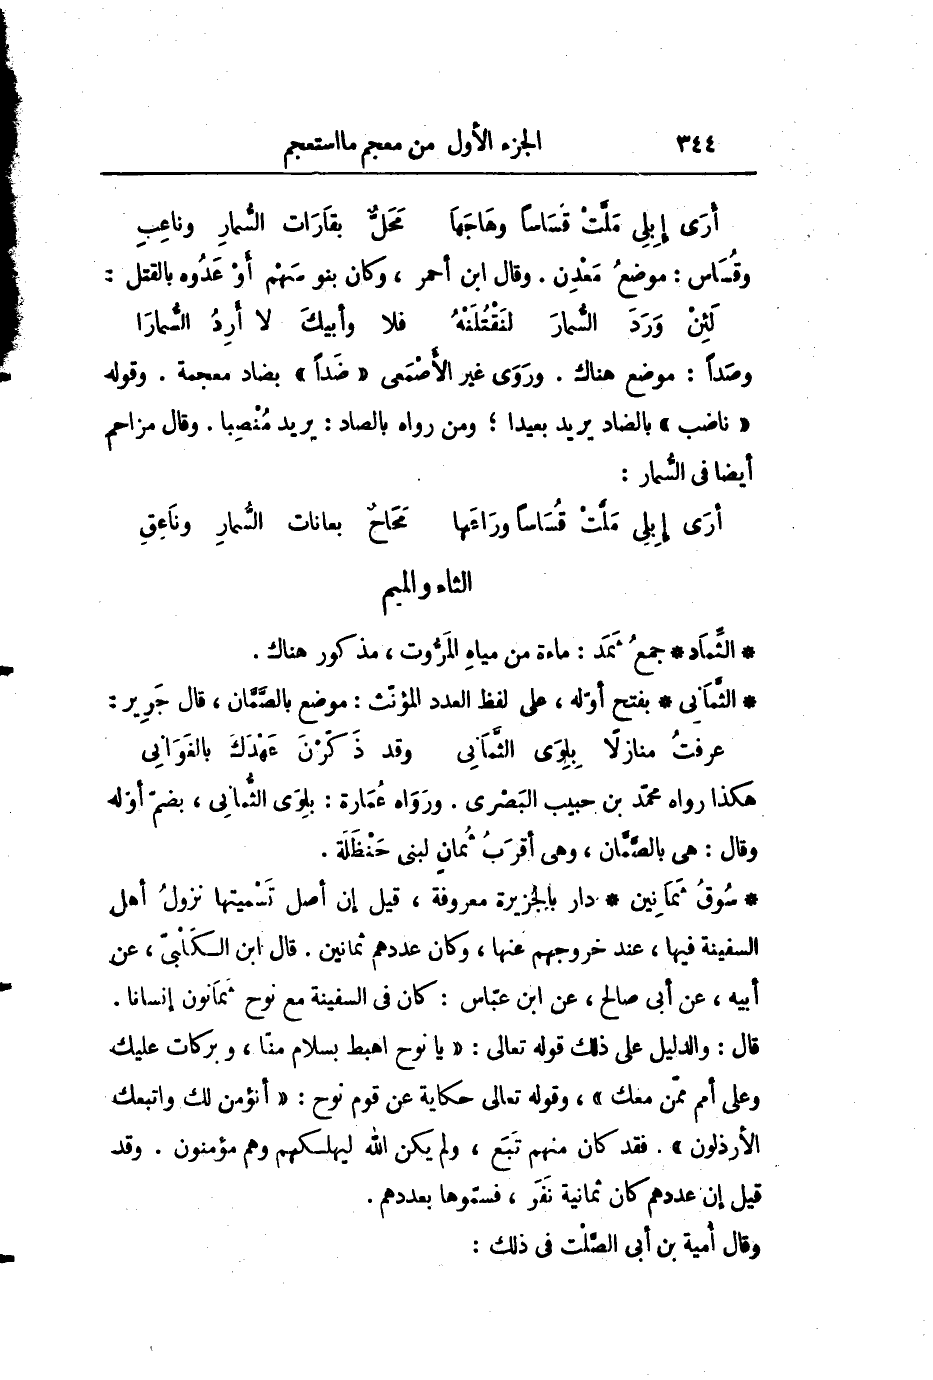 ٣٤٤ الجزء الأول من معجم مااستعجم
أرَى إبِلِى مَلَّتْ قَسَاسًا وهَاجَهَا مَحَلٌّ بقَارَات السُّمارِ وناعِبِ
وقُسَاس : موضعُ مَعْدِن . وقال ابن أحمر ، وكان بنو سَهْم أَوْ عَدُوه بالقتل :
لَئِنْ وَرَدَ السُّمارَ لنَقْتُلَنْهُ فلا وأبيكَ لا أرِدُ السُّمارَا
وصَدَاً : موضع هناك . ورَوَى غير الأَصْمَعى « ضَداً » بضاد معجمة . وقوله
« ناضب » بالضاد يريد بعيدا ؛ ومن رواه بالصاد : يريد مُنْصِبا . وقال مزاحم
أيضا فى السُّمار :
أرَى إبِلِى مَلَّتْ قُسَاسًا ورَاعَها مَحَاحٌ بعانات السُّمارِ ونَاعِقِ
الثاء والميم
* الثِّمَاد * جمعُ ثَمَد : ماءة من مياهِ المَرُّوت ، مذكور هناك .
* الثَّمَانِى * بفتح أوّله ، على لفظ العدد المؤنّث : موضع بالصَّمَّان ، قال جَرِير :
عرفتُ منازلًا بِلِوَى الثَّمَانِى وقد ذَكَّرْنَ عَهْدَكَ بالغَوَانِى
هكذا رواه محمّد بن حبيب البَصْرى . ورَوَاه عُمَارة : بلِوَى الثُّمانِى ، بضمّ أوّله
وقال : هى بالصَّمَّان ، وهى أقرَبُ ثُمانٍ لبنى حَنْظَلَة .
* سُوقُ ثَمَانِين * دار بالجزيرة معروفة ، قيل إن أصل تَسْميتها نزولُ أهل
السفينة فيها ، عند خروجهم عنها ، وكان عددهم ثمانين . قال ابن الكَلْبىّ ، عن
أبيه ، عن أبى صالح ، عن ابن عبّاس : كان فى السفينة مع نوح ثَمَانون إنسانا .
قال : والدليل على ذلك قوله تعالى : « يا نوح اهبط بسلام منّا ، وبركات عليك
وعلى أمم ممّن معك » ، وقوله تعالى حكاية عن قوم نوح : « أنؤمن لك واتبعك
الأرذلون » . فقد كان منهم تَبَع ، ولم يكن الله ليهلكهم وهم مؤمنون . وقد
قيل إن عددهم كان ثمانية نَفَر ، فسمّوها بعددهم .
وقال أمية بن أبى الصَّلْت فى ذلك :